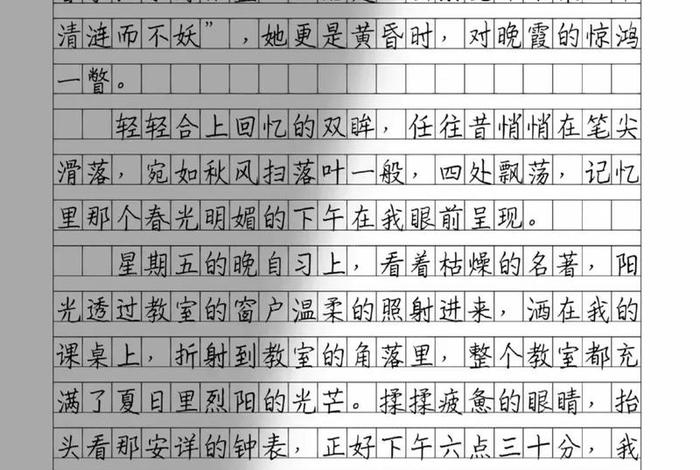 清涟而不妖”,她更是黄昏时,对晚霞的惊鸿
一瞥。
轻轻合上回忆的双眸,任往昔悄悄在笔尖
滑落,宛如秋风扫落叶一般,四处飘荡,记忆
里那个春光明媚的下午在我眼前呈现。
星期五的晚自习上,看着枯燥的名著,阳
光透过教室的窗户温柔的照射进来,洒在我的
课桌上,折射到教室的角落里,整个教室都充
满了夏日里烈阳的光芒。揉揉疲惫的眼睛,抬
头看那安详的钟表,正好下午六点三十分,我